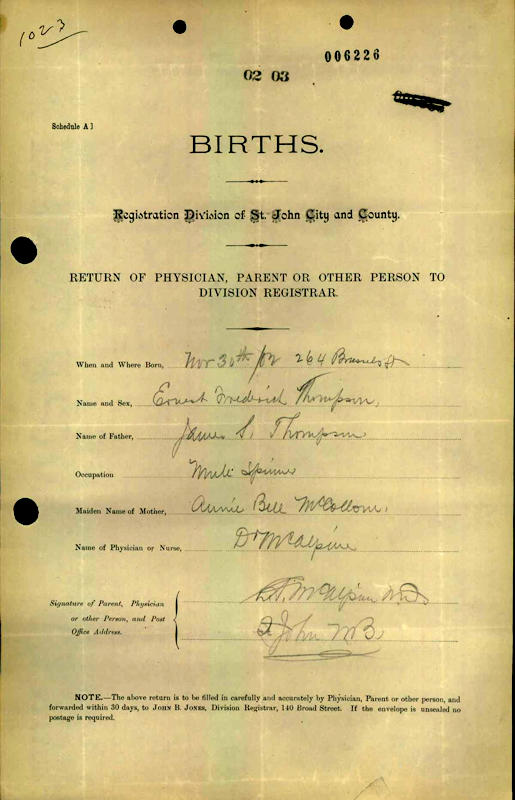 1023
006226
02 03
Schedule A]
BIRTHS.
Registration Division of St. John City and County.
RETURN OF PHYSICIAN, PARENT OR OTHER PERSON TO
DIVISION REGISTRAR.
When and Where Born, Nov 30th/02 264 Brussels St
Name and Sex, Ernest Frederick Thompson,
Name of Father, James S. Thompson
Occupation Mule Spinner
Maiden Name of Mother, Annie Bell McCollom,
Name of Physician or Nurse, Dr McAlpine
Signature of Parent, Physician
or other Person, and Post
Office Address.
McAlpine MD
St John NB.
NOTE.—The above return is to be filled in carefully and accurately by Physician, Parent or other person, and
forwarded within 30 days, to JOHN B. JONES, Division Registrar, 140 Broad Street. If the envelope is unsealed no
postage is required.